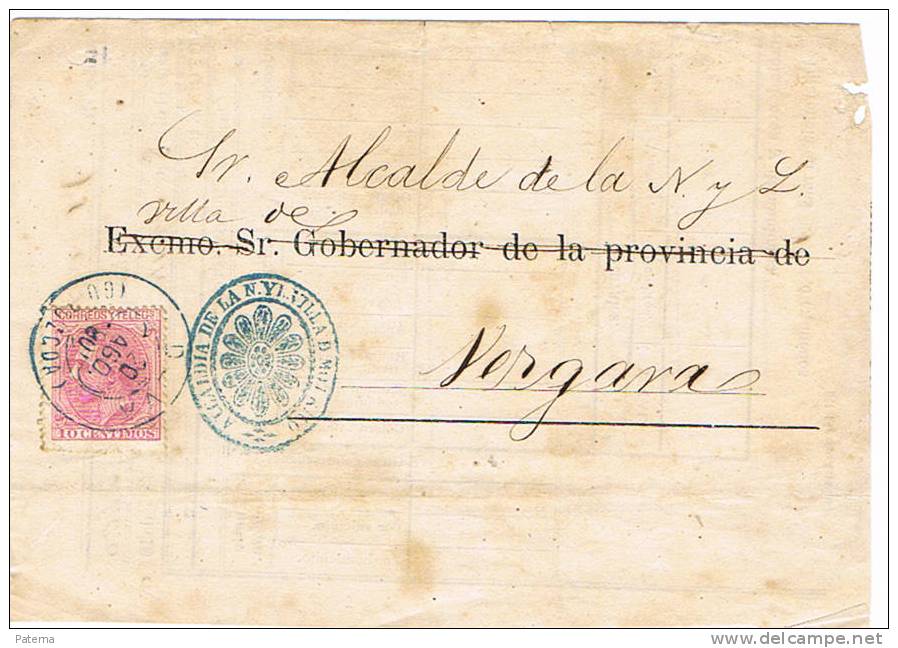 Sr. Alcalde de la N. y L.
villa de
Excmo. Sr. Gobernador de la provincia de
Vergara
CORREOS Y TELEGS
10 CENTIMOS
ALCALDIA DE LA N. Y L. VILLA D
Paterna
www.delcampe.net